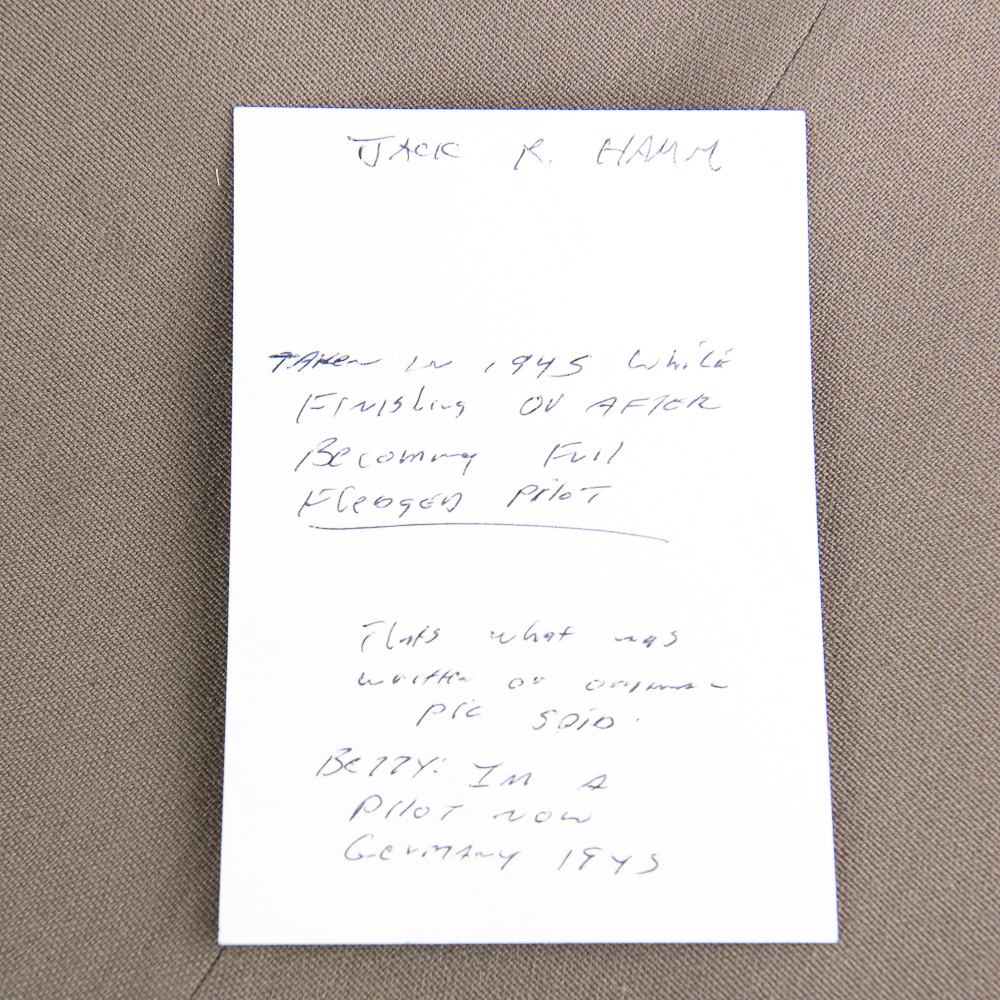 JACK R. HAMM
TAKEN IN 1945 While
Finishing or AFTER
Becoming Full
Fledged pilot
That's what was
written on original
pic SAID:
BETTY: IM A
PILOT NOW
GERMANY 1945